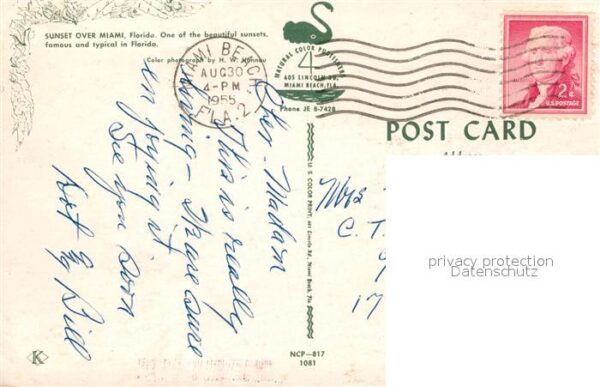 SUNSET OVER MIAMI, Florida. One of the beautiful sunsets,
famous and typical in Florida.
Color photograph by H. W. Hannau
MIAMI BEACH
AUG 30
4-PM
1955
FLA. 2
NATURAL COLOR PUBLISHERS
4
605 LINCOLN RD.
MIAMI BEACH, FLA.
Phone JE 8-7428
2¢
U.S. POSTAGE
POST CARD
Madam
This is really
living - Have sure
enjoying it
See you soon
Dot &
Bill
Mrs
C. T.
17
privacy protection
Datenschutz
U. S. COLOR PRINT, 605 Lincoln Rd., Miami Beach, Fla.
K
NCP-817
1081